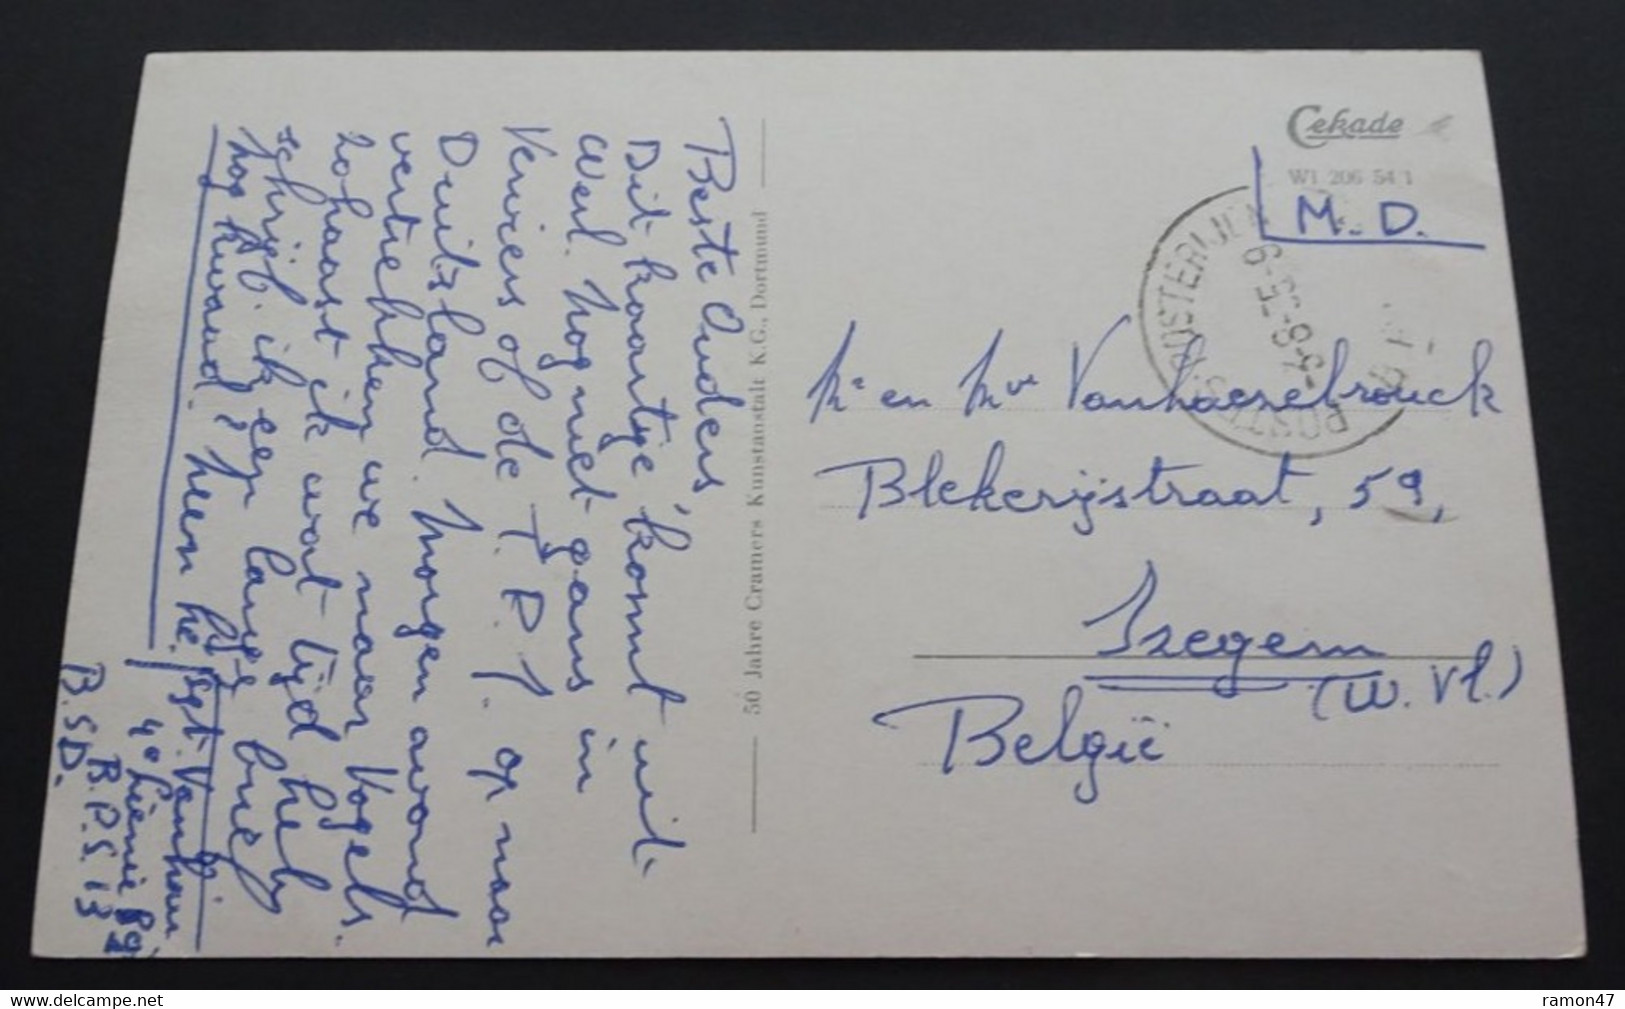 Beste Ouders,
Dit kaartje komt uit
Weel. Nog niet gans in
Verviers of de T.P.J. op naar
Duitsland. Morgen avond
vertrekken we naar Vogels.
zohaast ik wat tijd heb,
schrijf ik een lange brief.
Nog kwaad? Neen hé.
Sgt. Vanhaer
4e Génie
B.P.S. 13
B.S.D.
50 Jahre Cramers Kunstanstalt K.G., Dortmund
Cekade
WI 206 54 1
M. D.
POSTES-POSTERIJEN
9-8-55-9
Mr en Mve Vanhaezebrouck
Blekerijstraat, 59,
Izegem
(W. Vl.)
België
delcampe.net
ramon47